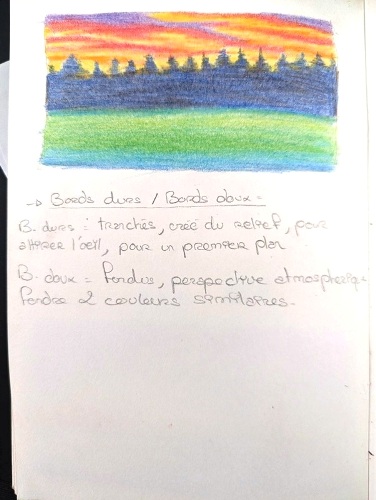 → Bords durs / Bords doux =
B. durs : tranchés, créé du relief, pour
attirer l'oeil, pour un premier plan
B. doux = Fondus, perspective atmosphérique
Fondre 2 couleurs similaires.